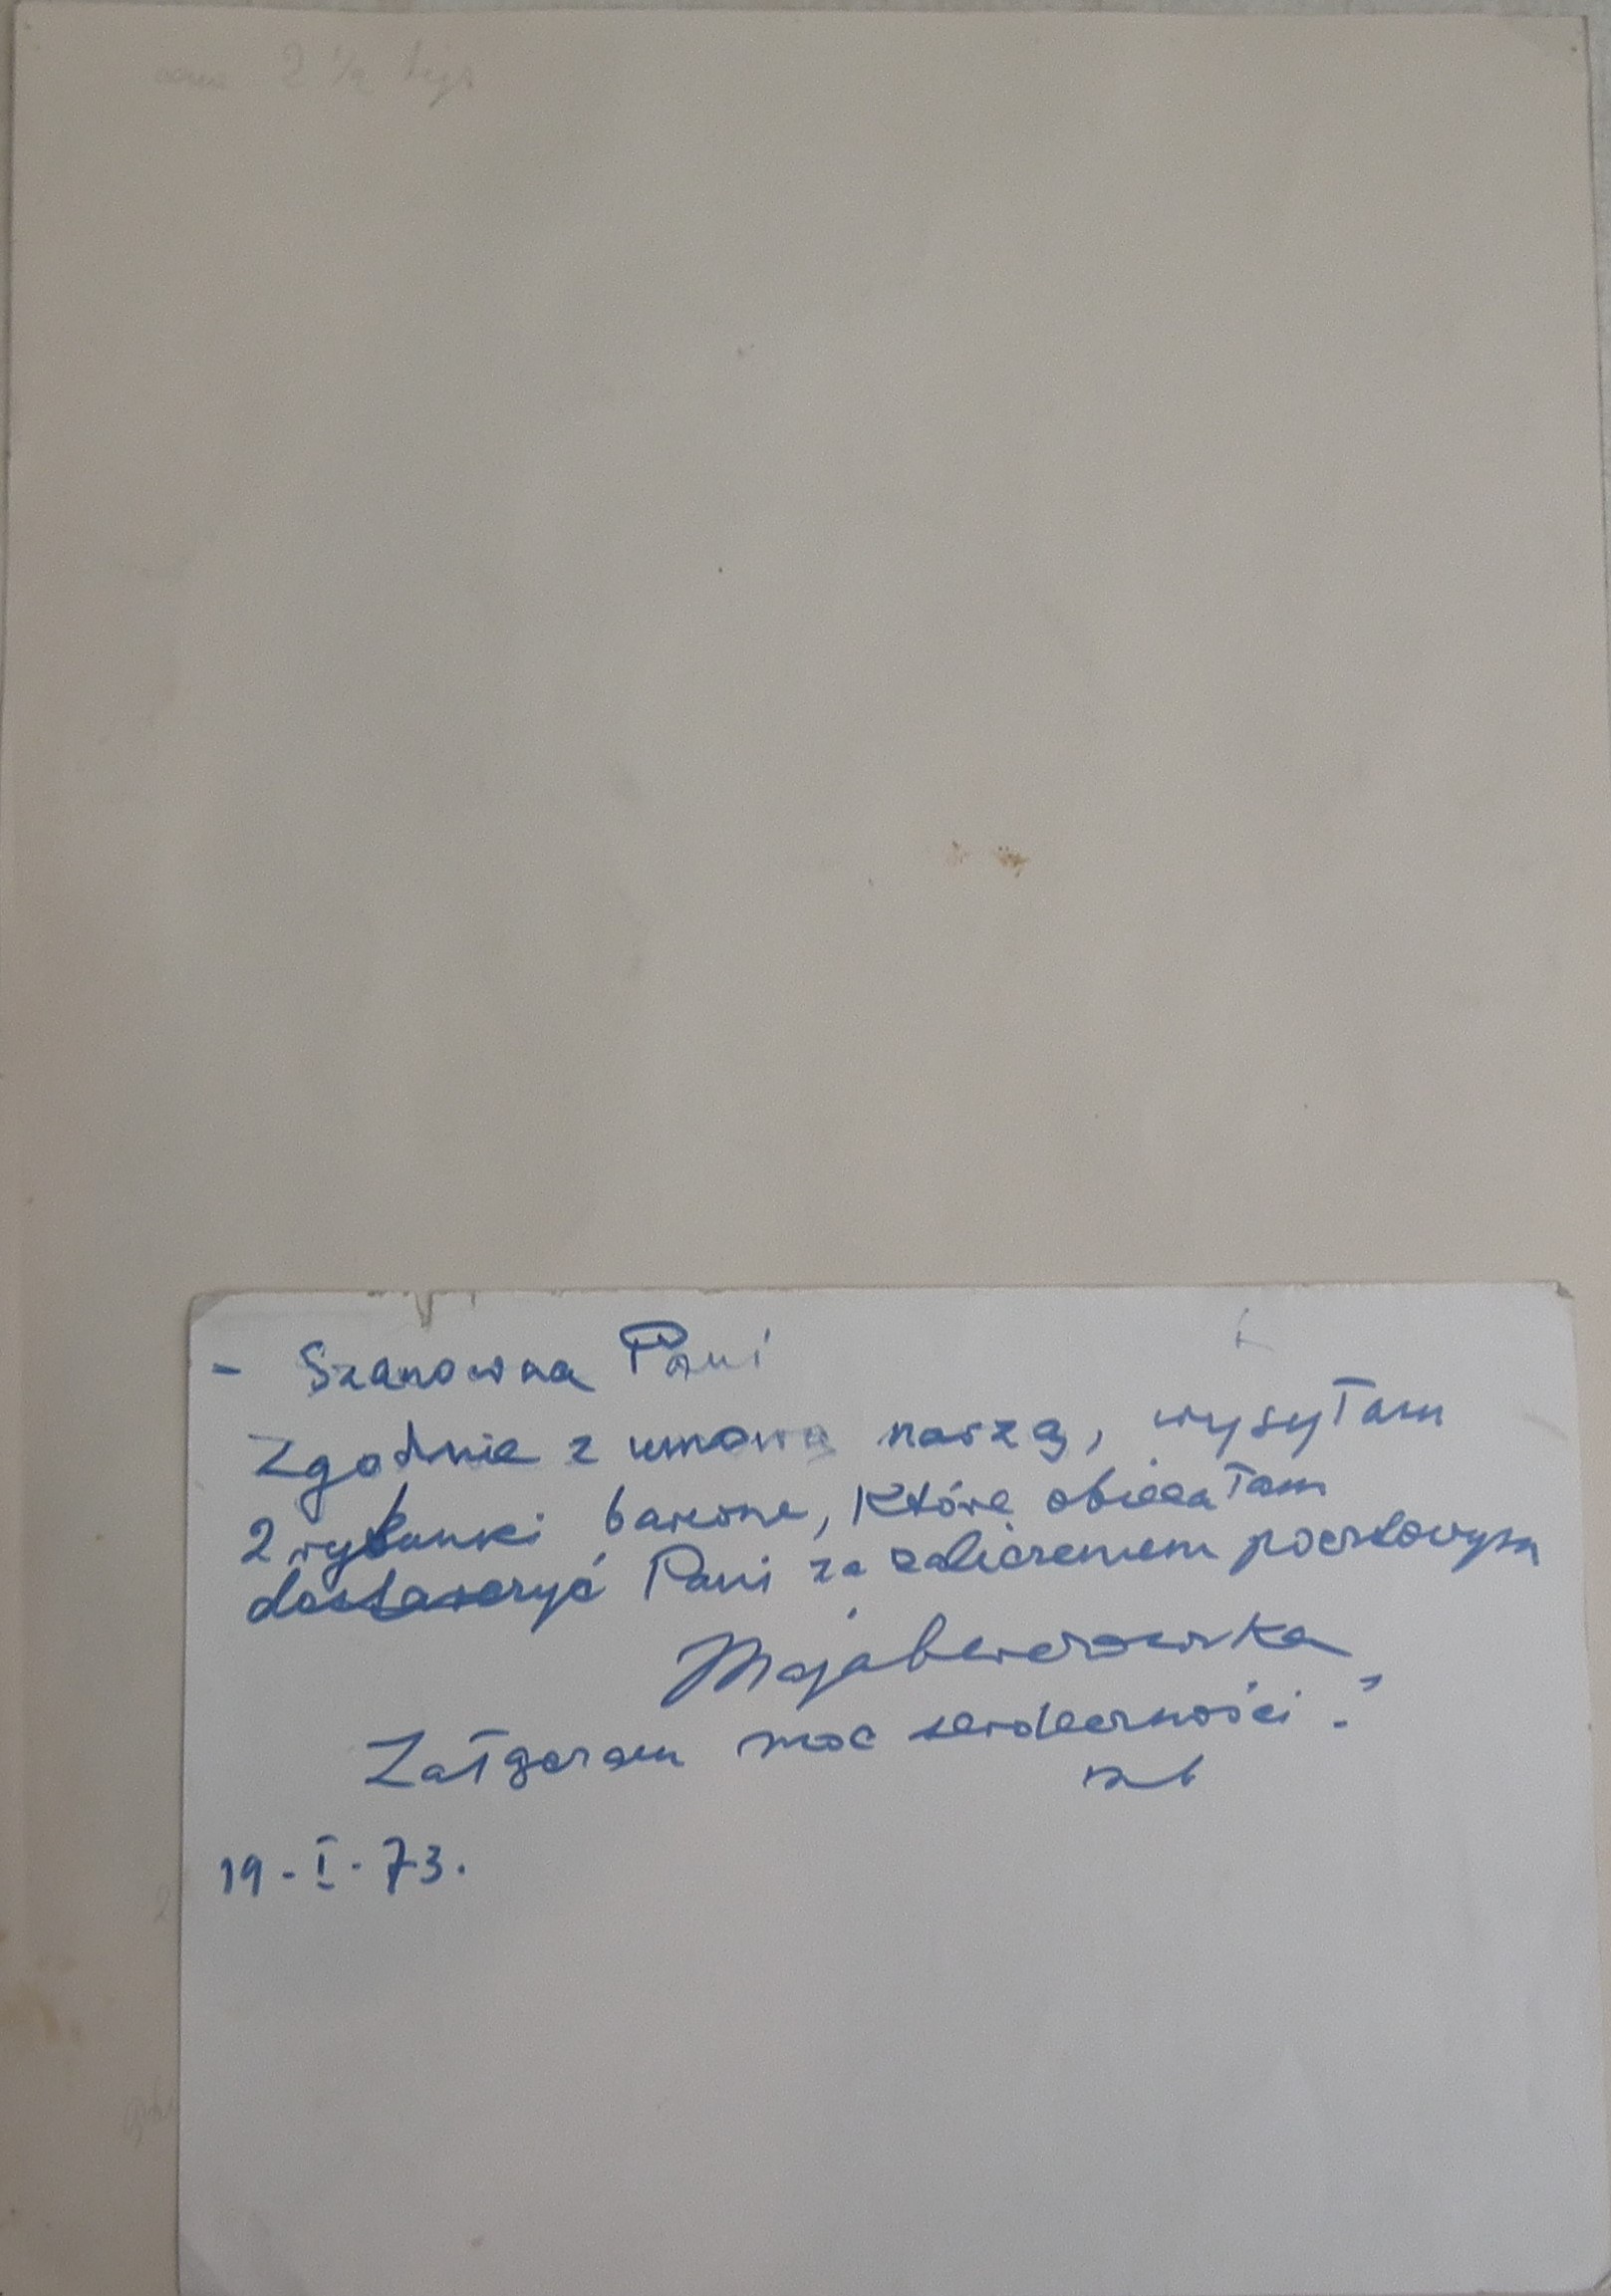 cena 2 ½ tys
- Szanowna Pani
Zgodnie z umową naszą, wysyłam
2 rysunki barwne, które obiecałam
dostarczyć Pani za zaliczeniem pocztowym
Maja Berezowska
Załączam moc serdeczności!
mb
19-I-73.